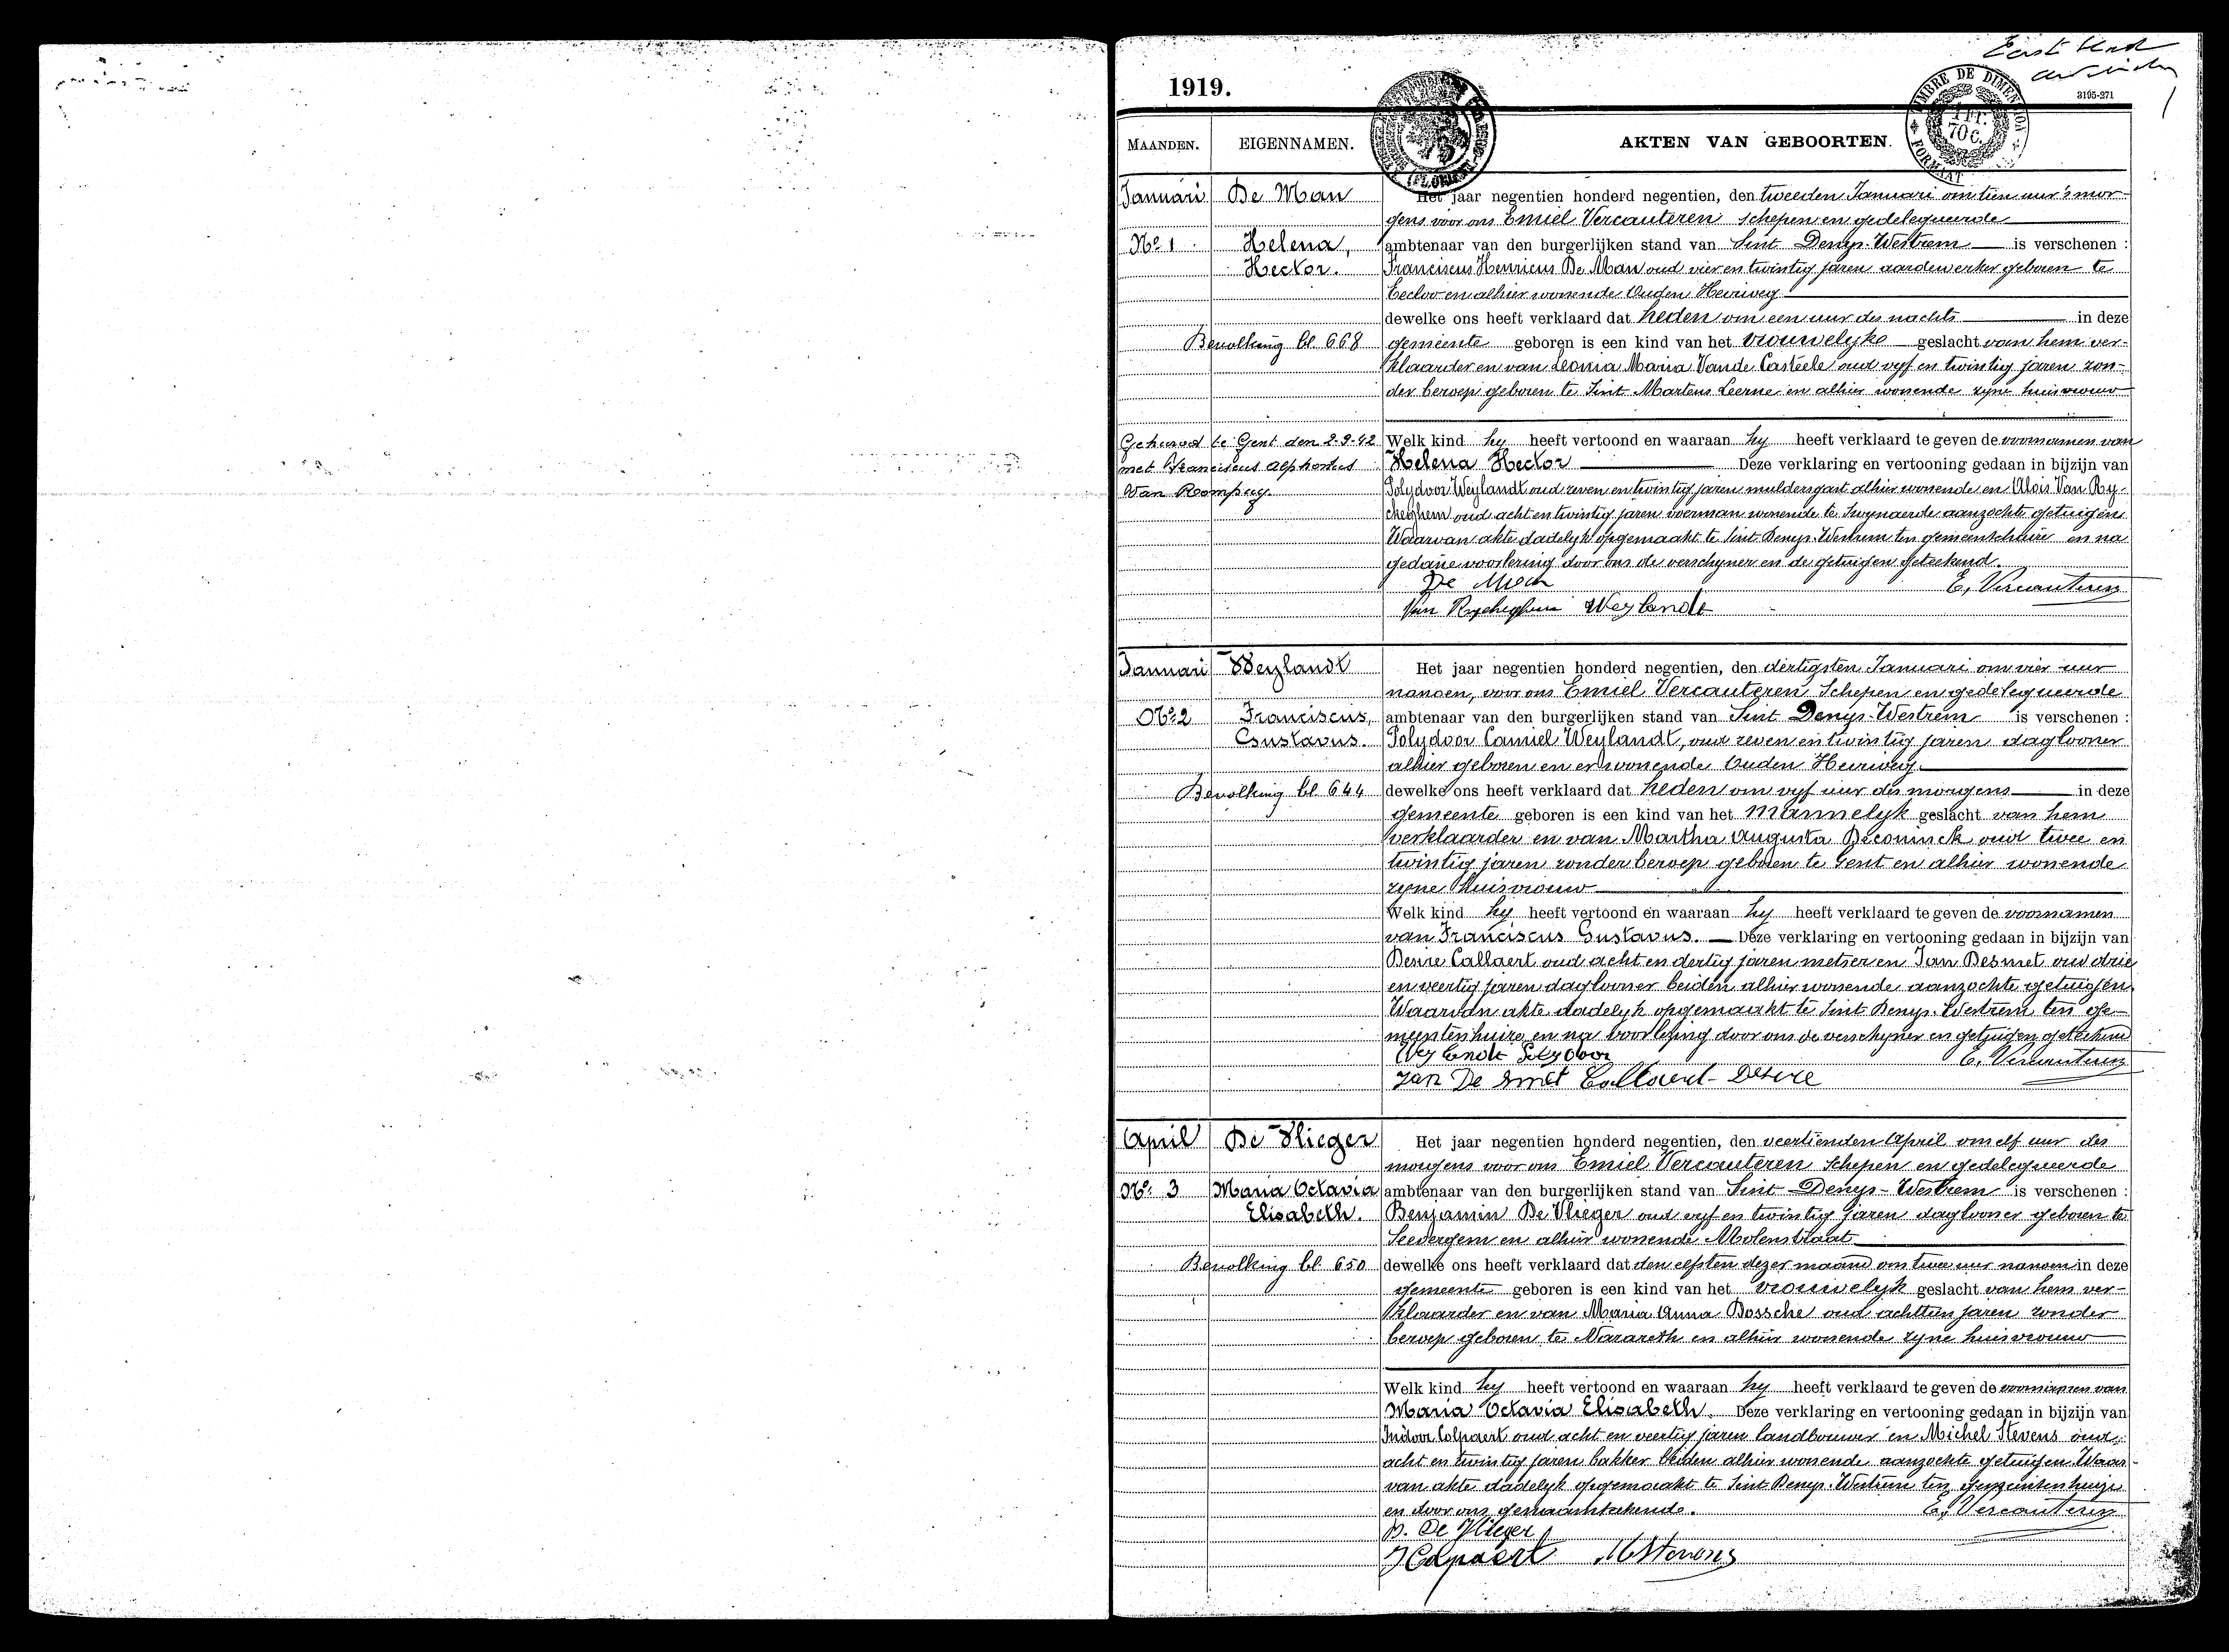 1919.
3195-271
MAANDEN. EIGENNAMEN. AKTEN VAN GEBOORTEN.
Januari De Man Het jaar negentien honderd negentien, den tweeden Januari om tien uur 's mor-
gens voor ons Emiel Vercauteren Schepen en gedelegueerde
No 1 Helena, ambtenaar van den burgerlijken stand van Sint Denys-Westrem is verschenen :
Hector. Franciscus Henricus De Man oud vier en twintig jaren aardewerker geboren te
Eecloo en alhier wonende Ouden Heirweg
dewelke ons heeft verklaard dat heden om een uur des nachts in deze
Bevolking bl. 668 gemeente geboren is een kind van het vrouwelyke geslacht van hem ver-
klaarder en van Leonia Maria Vande Casteele oud vyf en twintig jaren zon-
der beroep geboren te Sint Martens Leerne en alhier wonende zyne huisvrouw
Gehuwd te Gent den 2-9-42 Welk kind hy heeft vertoond en waaraan hy heeft verklaard te geven de voornamen van
met Franciscus Alphonsus Helena Hector Deze verklaring en vertooning gedaan in bijzijn van
Van Rompuy. Polydoor Weylandt oud zeven en twintig jaren muldersgast alhier wonende en Alois Van Ry-
cheghem oud acht en twintig jaren voerman wonende te Zwynaerde aanzochte getuigen
Waarvan akte dadelyk opgemaakt te Sint Denys-Westrem ten gemeentehuize en na
gedane voorlezing door ons de verschyner en de getuigen geteekend.
De Man E. Vercauteren
Van Rycheghem Weylandt
Januari Weylandt Het jaar negentien honderd negentien, den dertigsten Januari om vier uur
nanoen, voor ons Emiel Vercauteren Schepen en gedelegueerde
No 2 Franciscus, ambtenaar van den burgerlijken stand van Sint Denys-Westrem is verschenen :
Gustavus. Polydoor Camiel Weylandt, oud zeven en twintig jaren daglooner
alhier geboren en er wonende Ouden Heirweg.
Bevolking bl. 644 dewelke ons heeft verklaard dat heden om vyf uur des morgens in deze
gemeente geboren is een kind van het Mannelyk geslacht van hem
verklaarder en van Martha Augusta Deconinck oud twee en
twintig jaren zonder beroep geboren te Gent en alhier wonende
zyne huisvrouw
Welk kind hy heeft vertoond en waaraan hy heeft verklaard te geven de voornamen
van Franciscus Gustavus. Deze verklaring en vertooning gedaan in bijzijn van
Desire Callaert oud acht en dertig jaren metser en Jan Desmet oud drie
en veertig jaren daglooner beiden alhier wonende aanzochte getuigen.
Waarvan akte dadelyk opgemaakt te Sint Denys-Westrem ten ge-
meentenhuize en na voorlezing door ons de verschyner en getuigen geteekend
Weylandt Polydoor E. Vercauteren
Jan De Smet Callaert Desire
April De Vlieger Het jaar negentien honderd negentien, den veertienden April om elf uur des
morgens voor ons Emiel Vercauteren Schepen en gedelegueerde
No 3 Maria Octavia ambtenaar van den burgerlijken stand van Sint-Denys-Westrem is verschenen :
Elisabeth. Benjamin De Vlieger oud vyf en twintig jaren daglooner geboren te
Leedergem en alhier wonende Molenstraat
Bevolking bl. 650 dewelke ons heeft verklaard dat den elfsten dezer maand om twee uur nanoen in deze
gemeente geboren is een kind van het vrouwelyk geslacht van hem ver-
klaarder en van Maria Anna Bossche oud achttien jaren zonder
beroep geboren te Nazareth en alhier wonende zyne huisvrouw
Welk kind hy heeft vertoond en waaraan hy heeft verklaard te geven de voornamen van
Maria Octavia Elisabeth. Deze verklaring en vertooning gedaan in bijzijn van
Isidoor Colpaert oud acht en veertig jaren landbouwer en Michel Stevens oud
acht en twintig jaren bakker beiden alhier wonende aanzochte getuigen. Waar-
van akte dadelyk opgemaakt te Sint Denys-Westrem ten gemeentenhuize
en door ons E. Vercauteren
B. De Vlieger
I Colpaert M Stevens